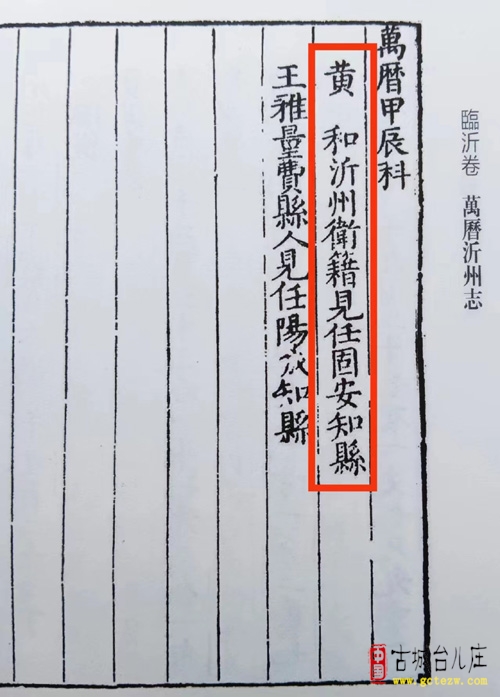 萬曆甲辰科
黄　和沂州衛籍見任固安知縣
王雅量費縣人見任陽城知縣
臨沂卷　萬曆沂州志
中国
古城台儿庄
www.gctezw.com